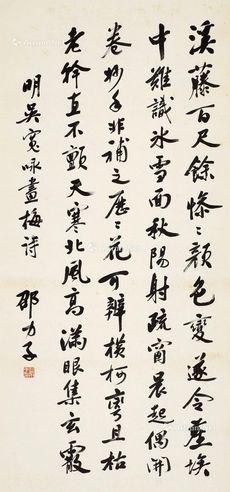 溪藤百尺餘慘〻顏色變遂令塵埃
中難識冰雪面秋陽射疏窗晨起偶開
卷妙手非補之歷〻花可辨橫柯彎且枯
老幹直不顫天寒北風高滿眼集玄霰
明吳寬咏畫梅詩 邵力子